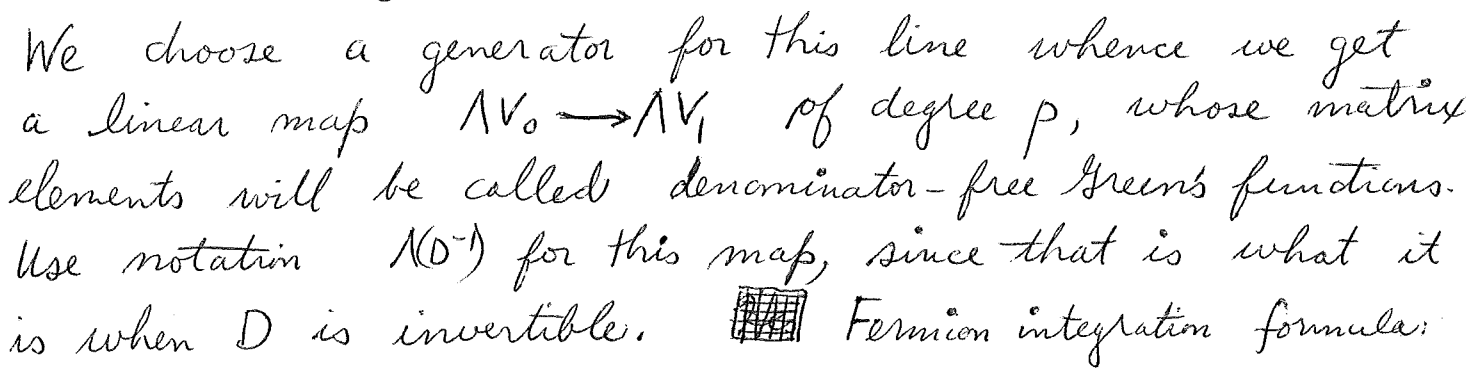 We choose a generator for this line whence we get
a linear map ΛV₀ ⟶ ΛV₁ of degree p, whose matrix
elements will be called denominator-free Green's functions.
Use notation Λ(D⁻¹) for this map, since that is what it
is when D is invertible. Fermion integration formula: